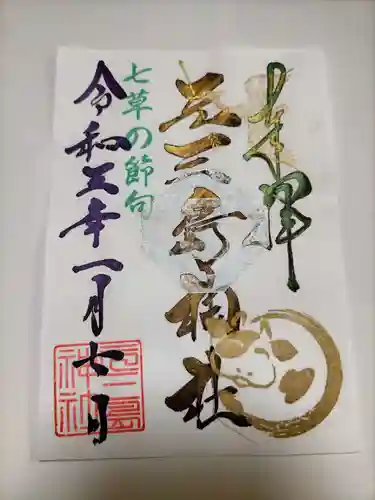 奉拝
元三島神社
七草の節句
令和五年一月七日
元三島
神社